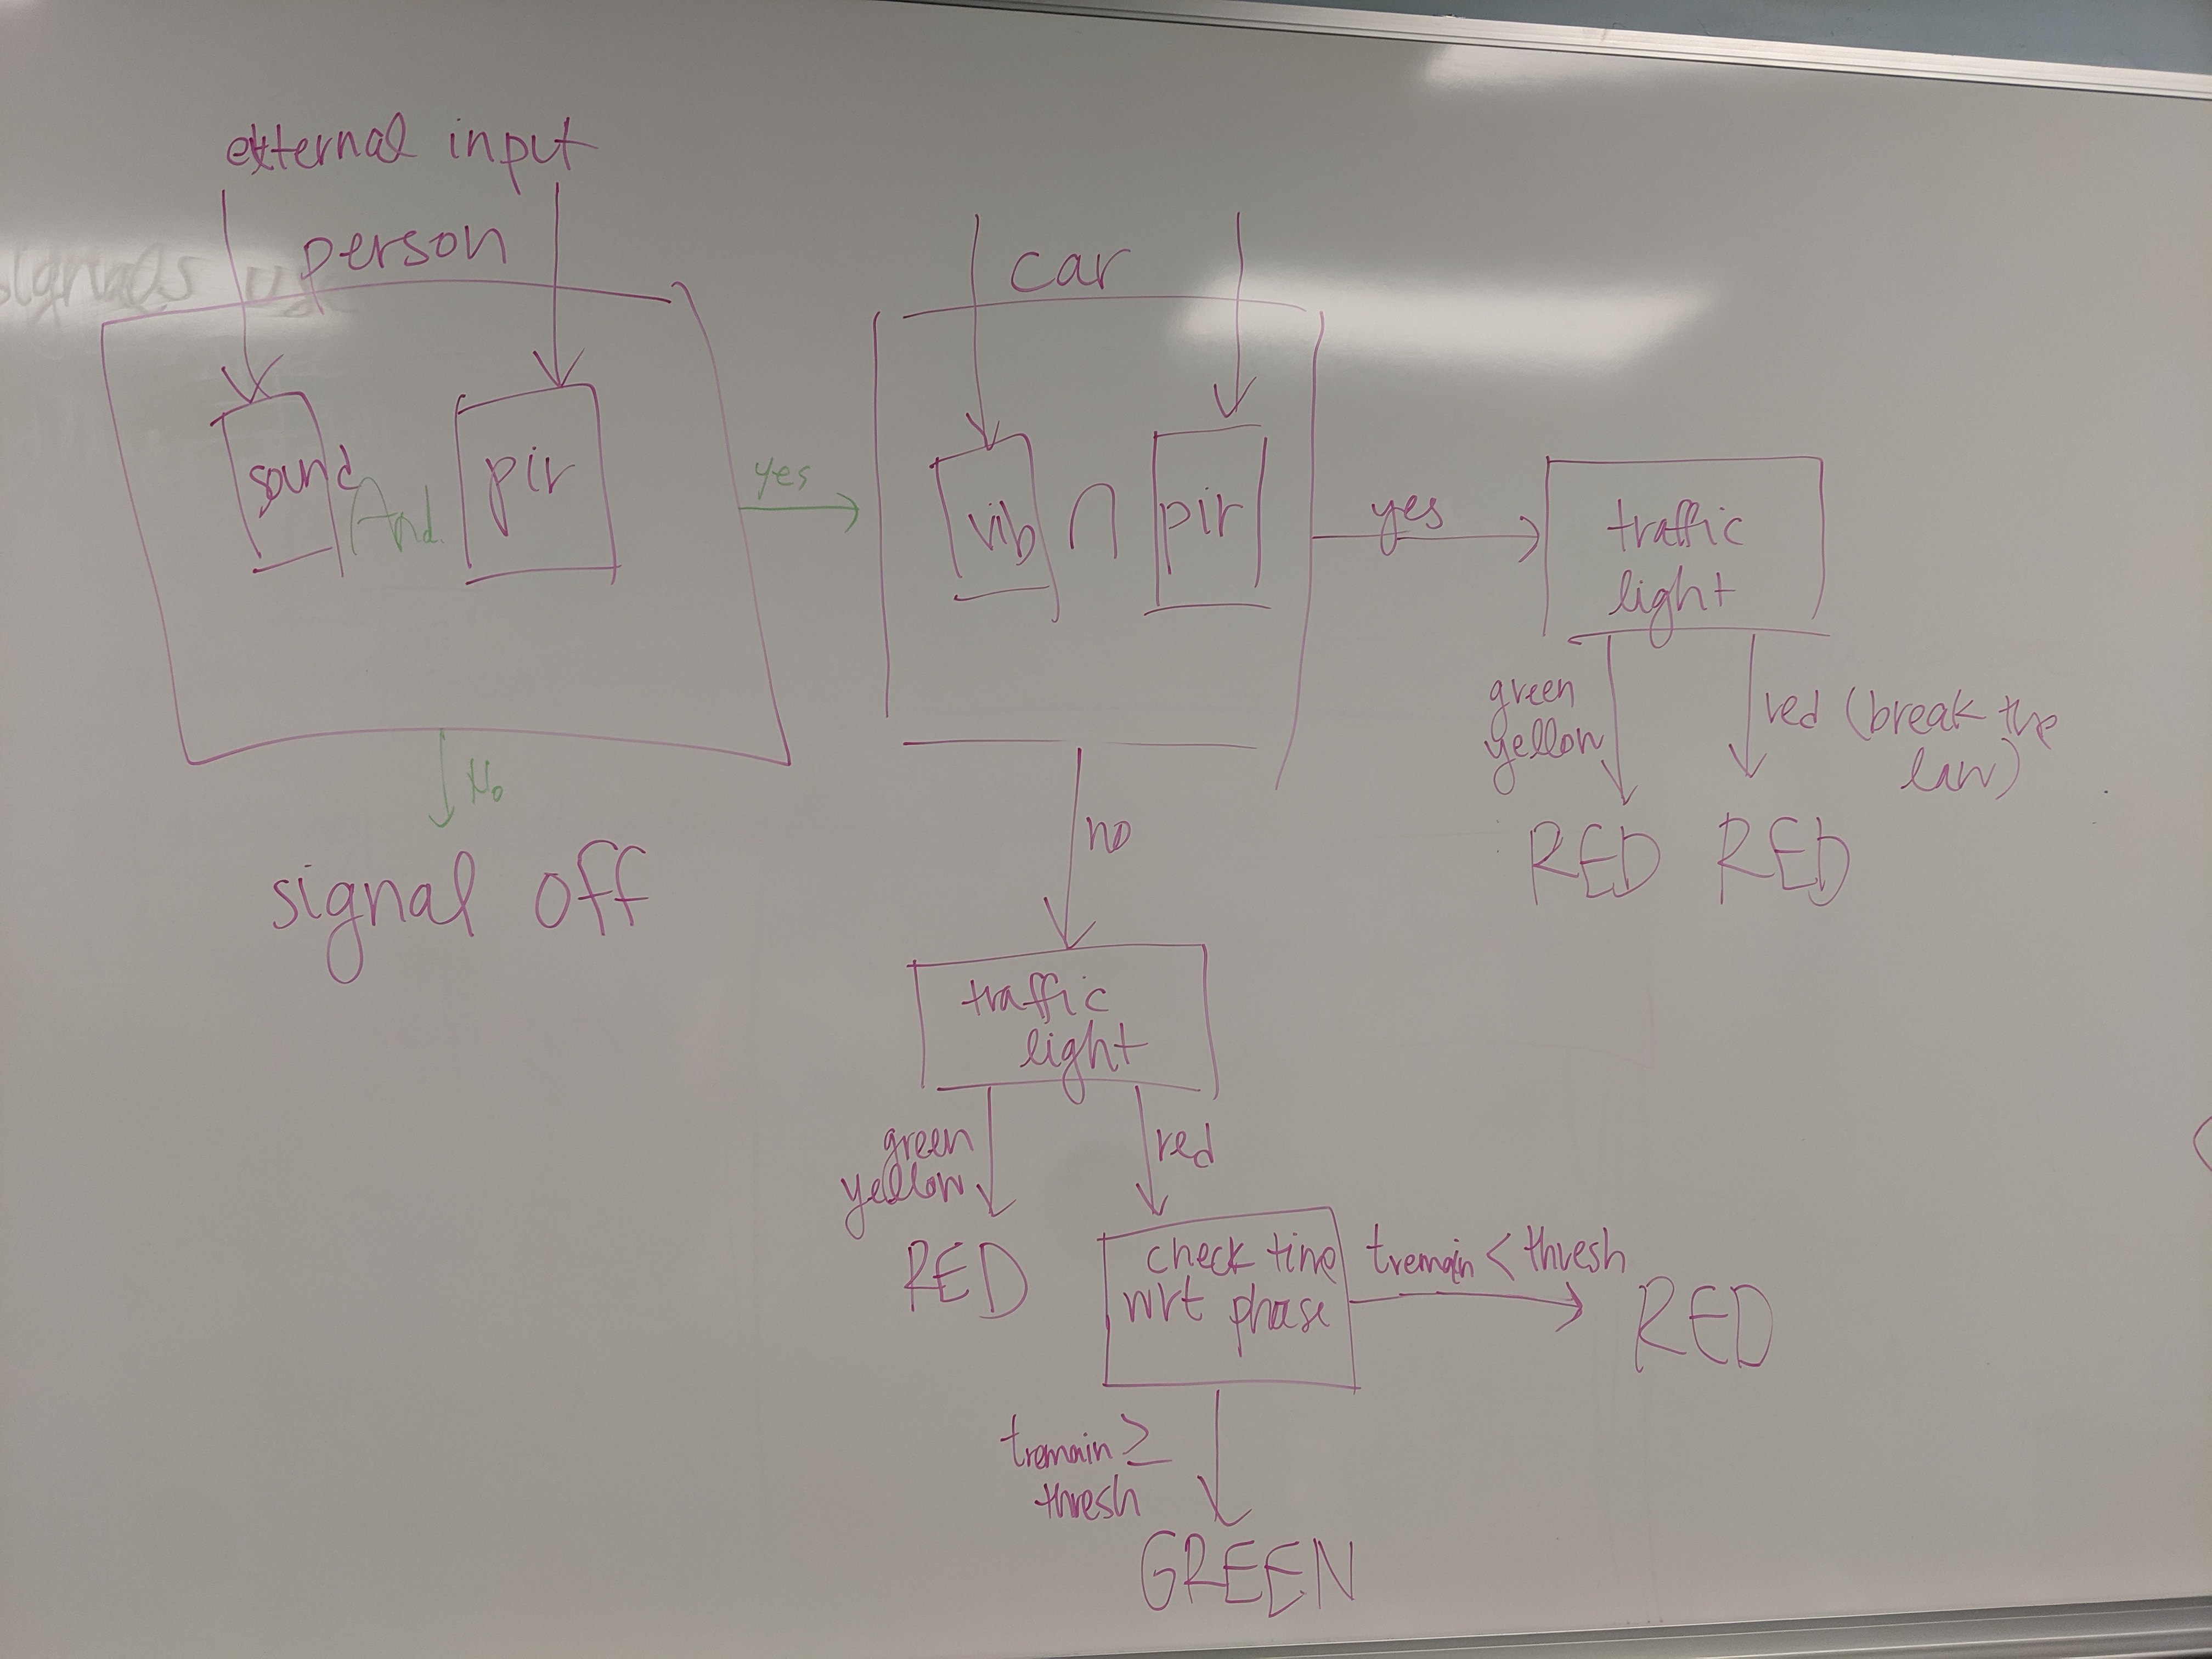 external input
person
signals us
sound And. pir
yes
No
signal off
car
vib ∩ pir
yes
no
traffic
light
green
yellow
red (break the
law)
RED RED
traffic
light
green
yellow
red
RED
check time
wrt phase
tremain < thresh
RED
tremain ≥
thresh
GREEN